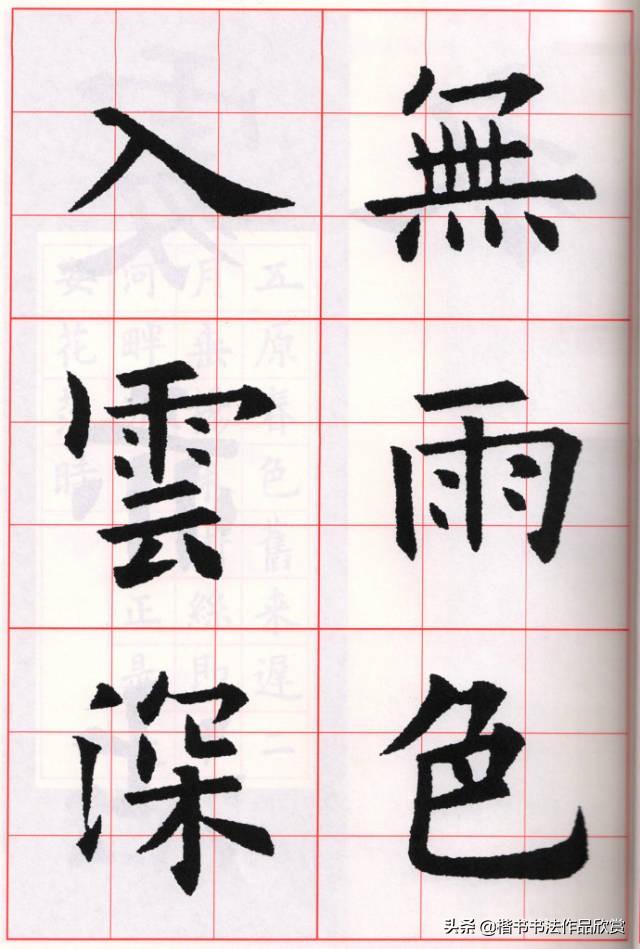 無雨色
入雲深
头条 @楷书书法作品欣赏